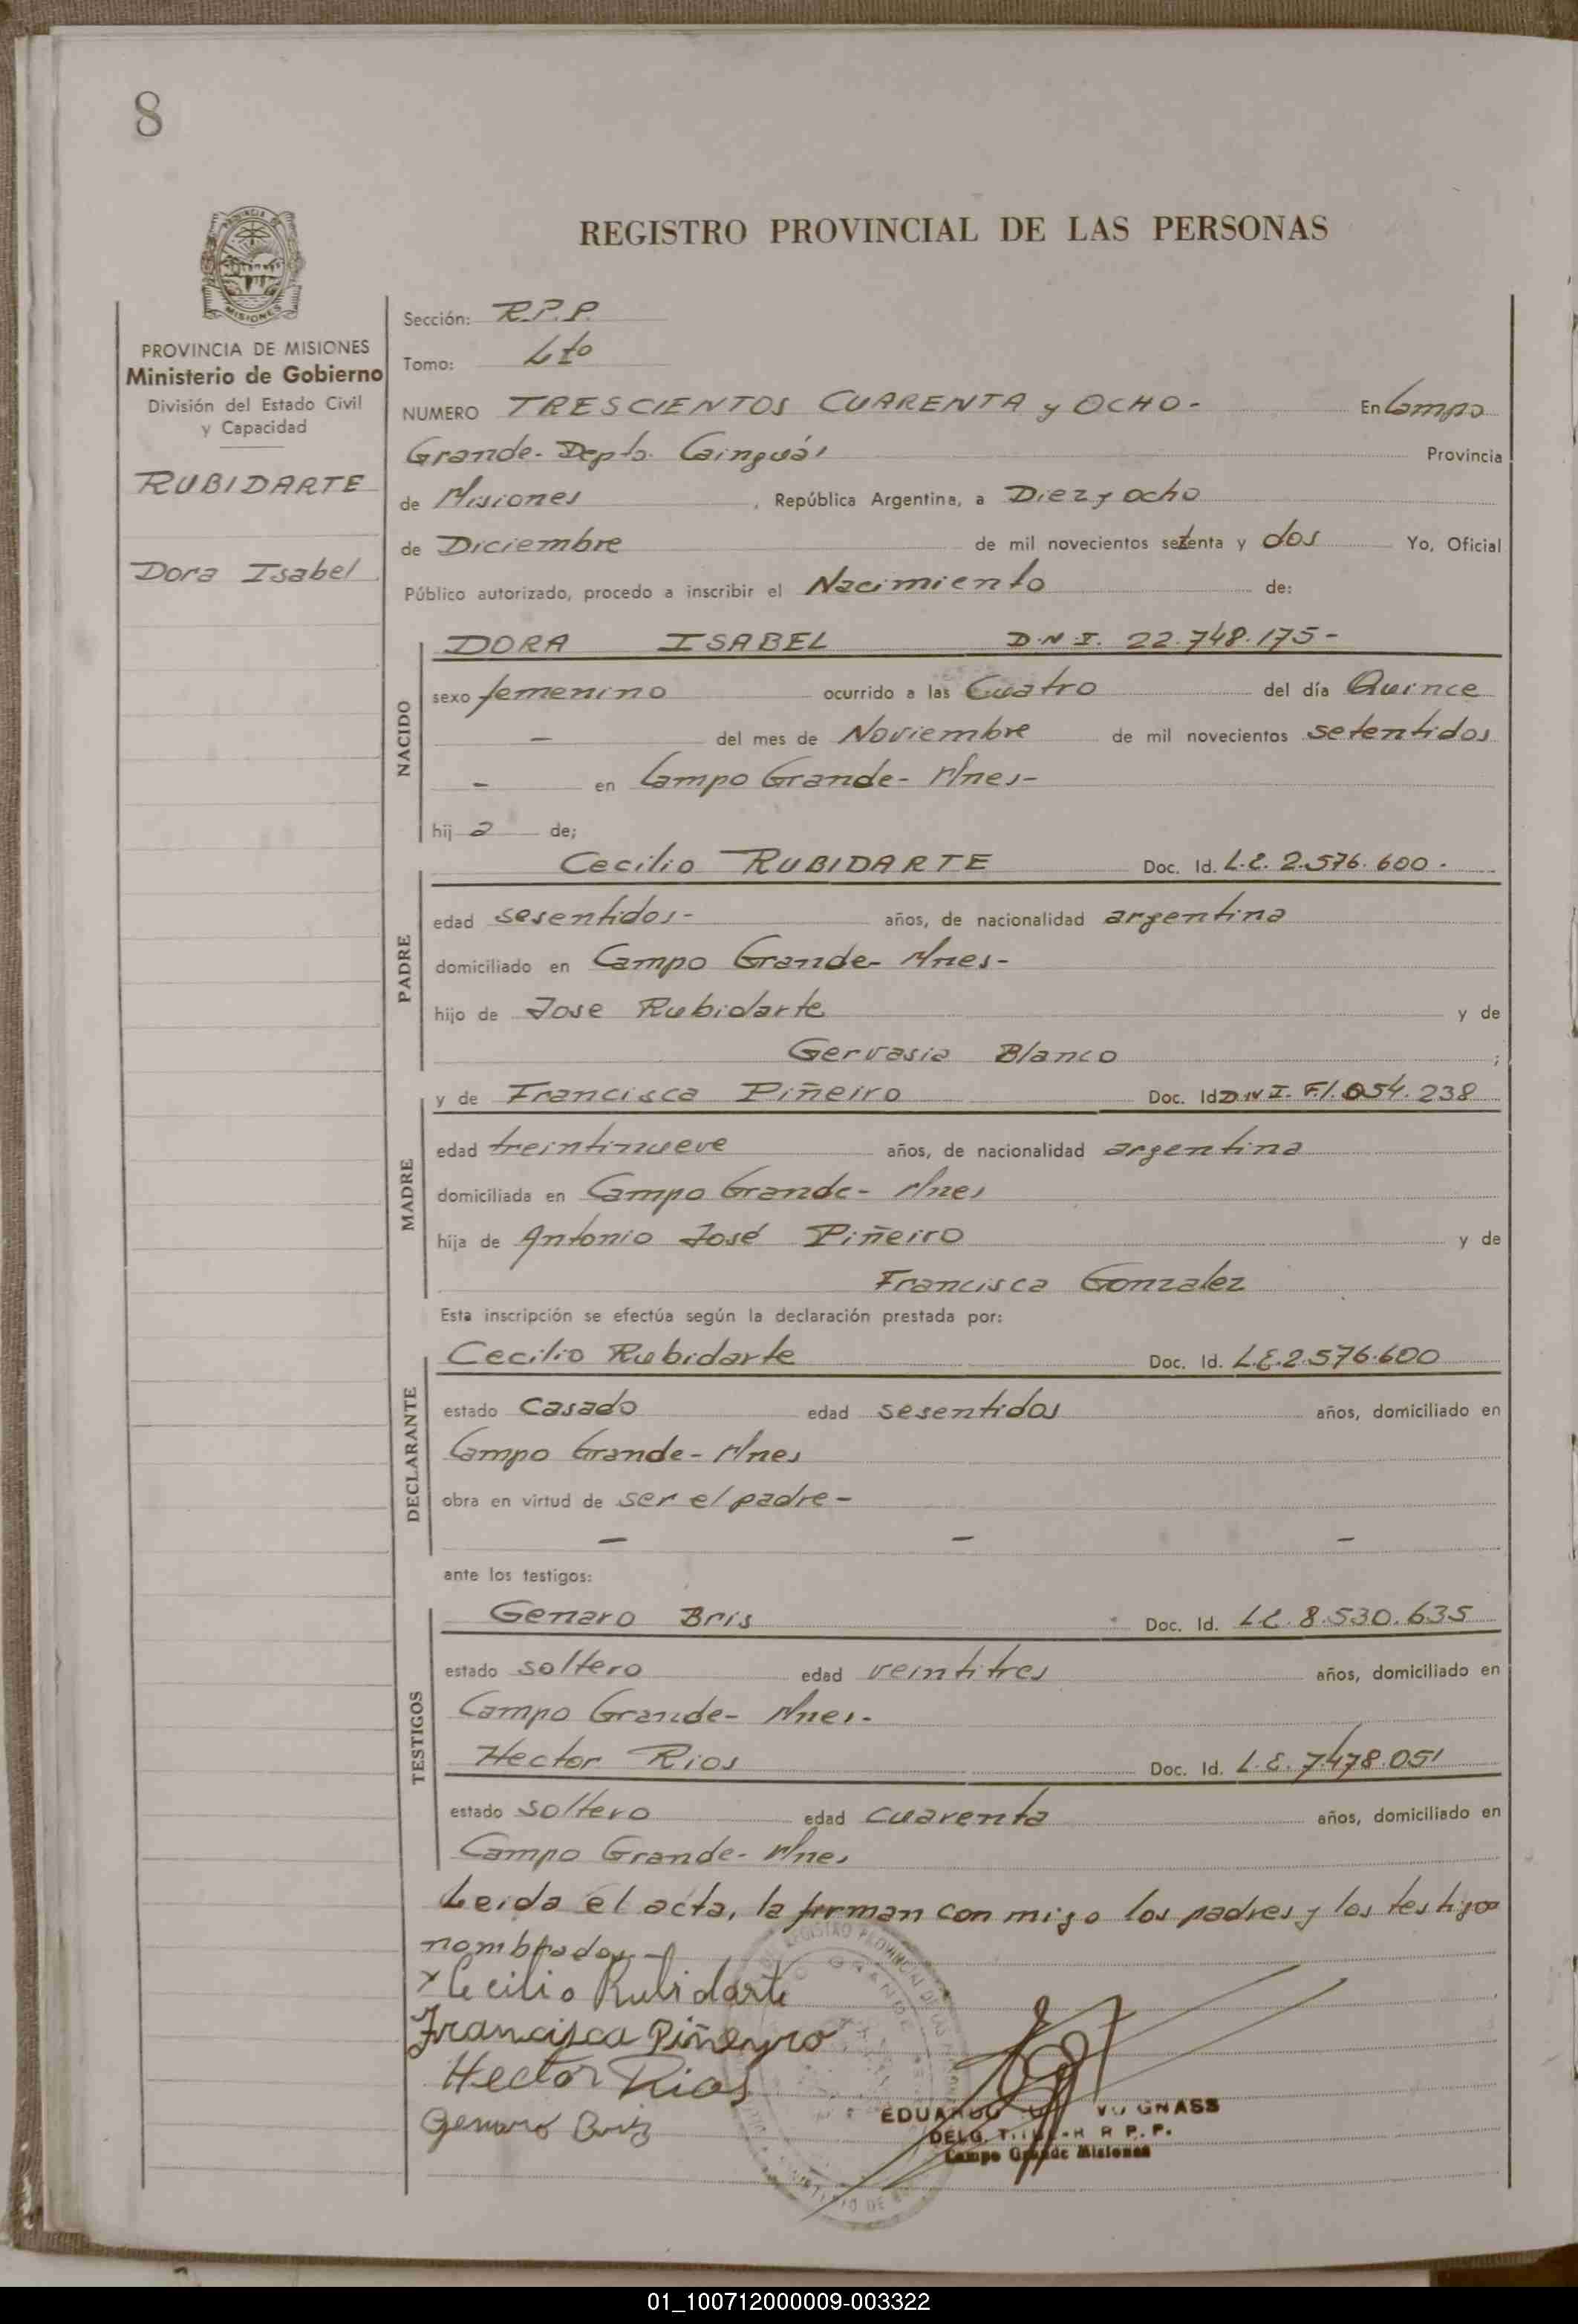 8
REGISTRO PROVINCIAL DE LAS PERSONAS
PROVINCIA DE MISIONES
Ministerio de Gobierno
División del Estado Civil
y Capacidad
RUBIDARTE
Dora Isabel
Sección: R.P.P.
Tomo: 4to
NUMERO TRESCIENTOS CUARENTA y OCHO- En Campo
Grande- Depto. Cainguás Provincia
de Misiones, República Argentina, a Diez y ocho
de Diciembre de mil novecientos setenta y dos Yo, Oficial
Público autorizado, procedo a inscribir el Nacimiento de:
NACIDO
DORA ISABEL D.N.I. 22.748.175-
sexo femenino ocurrido a las Cuatro del día Quince
- del mes de Noviembre de mil novecientos setentidos
- en Campo Grande- Mnes-
hij a de;
PADRE
Cecilio RUBIDARTE Doc. Id. L.E. 2.576.600-
edad sesentidos- años, de nacionalidad argentina
domiciliado en Campo Grande- Mnes-
hijo de Jose Rubidarte y de
Gervasia Blanco ;
MADRE
y de Francisca Piñeiro Doc. Id D.N.I. F.1.054.238
edad treintinueve años, de nacionalidad argentina
domiciliada en Campo Grande- Mnes
hija de Antonio José Piñeiro y de
Francisca Gonzalez
Esta inscripción se efectúa según la declaración prestada por:
DECLARANTE
Cecilio Rubidarte Doc. Id. L.E. 2.576.600
estado Casado edad sesentidos años, domiciliado en
Campo Grande- Mnes
obra en virtud de ser el padre-
- - -
ante los testigos:
TESTIGOS
Genaro Bris Doc. Id. L.E. 8.530.635
estado soltero edad veintitres años, domiciliado en
Campo Grande- Mnes-
Hector Rios Doc. Id. L.E. 7.478.051
estado soltero edad cuarenta años, domiciliado en
Campo Grande- Mnes
Leida el acta, la firman con migo los padres y los testigos
nombrados-
x Cecilio Rubidarte
Francisca Piñeyro
Hector Rios
Genaro Bris
EDUARDO GNASS
DELG. R.P.P.
Campo Grande Misiones
01_100712000009-003322